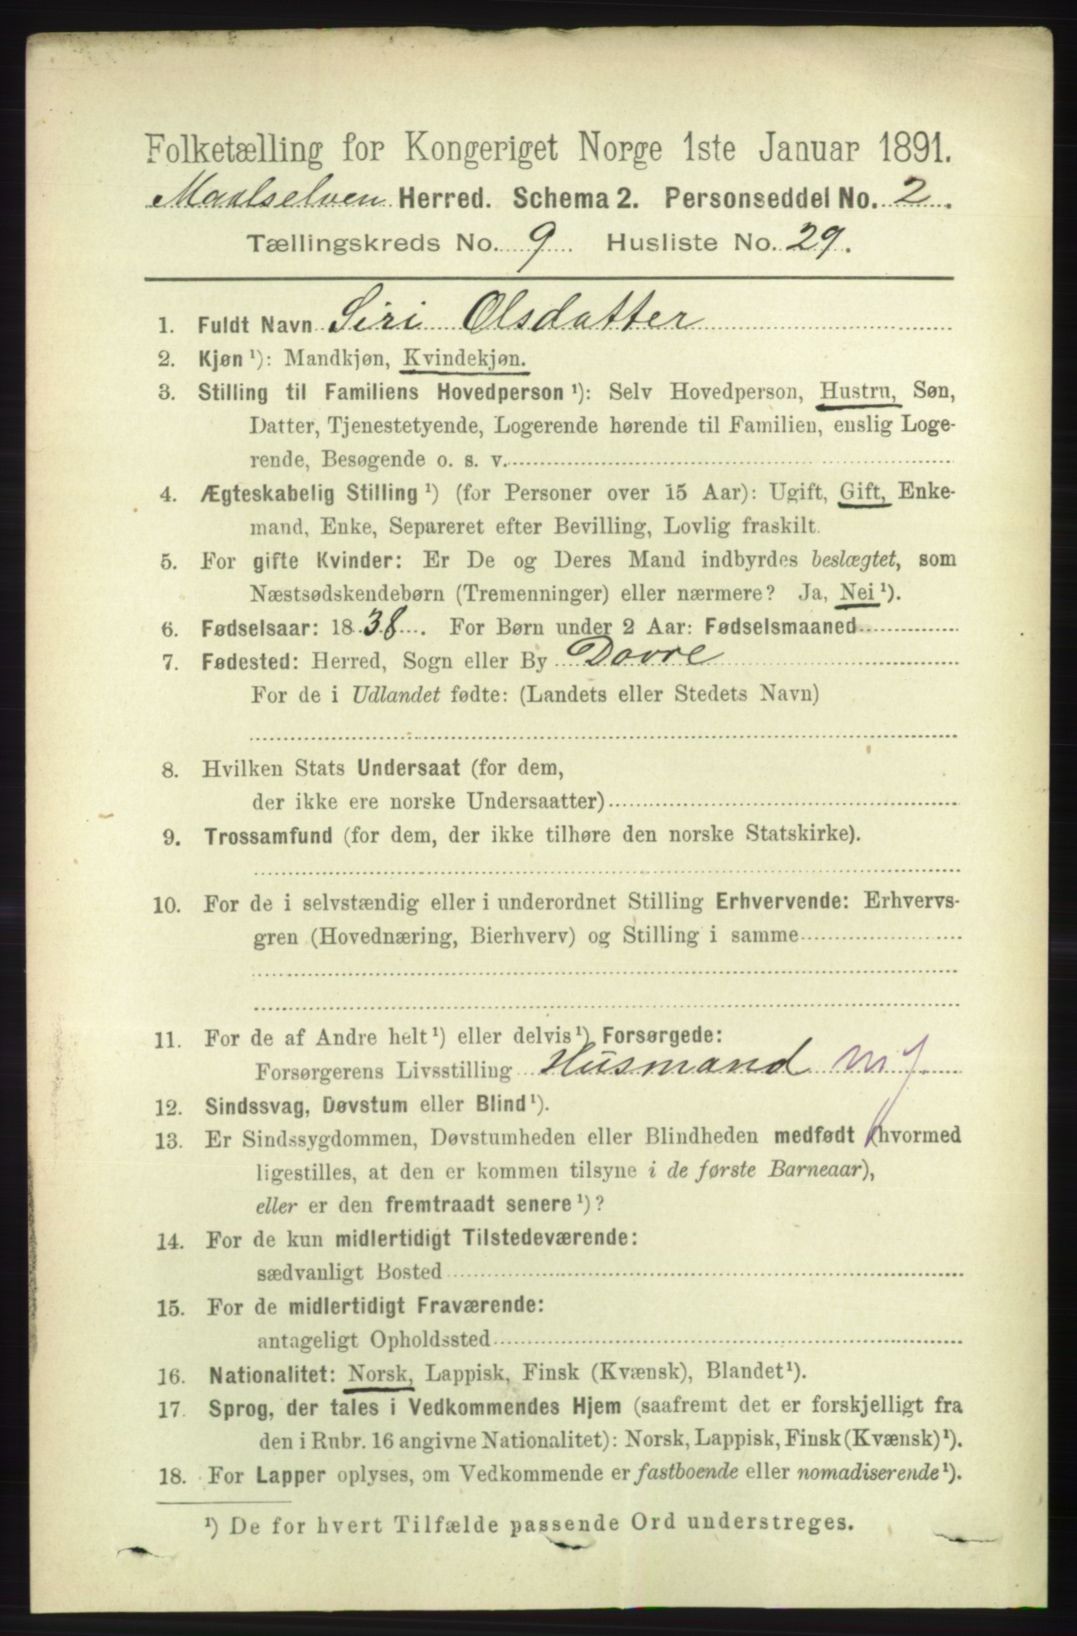 Folketælling for Kongeriget Norge 1ste Januar 1891.
Maalselven Herred. Schema 2. Personseddel No. 2.
Tællingskreds No. 9 Husliste No. 29.
1. Fuldt Navn Siri Olsdatter
2. Kjøn ¹): Mandkjøn, Kvindekjøn.
3. Stilling til Familiens Hovedperson ¹): Selv Hovedperson, Hustru, Søn,
Datter, Tjenestetyende, Logerende hørende til Familien, enslig Loge-
rende, Besøgende o. s. v.
4. Ægteskabelig Stilling ¹) (for Personer over 15 Aar): Ugift, Gift, Enke-
mand, Enke, Separeret efter Bevilling, Lovlig fraskilt.
5. For gifte Kvinder: Er De og Deres Mand indbyrdes beslægtet, som
Næstsødskendebørn (Tremenninger) eller nærmere? Ja, Nei ¹).
6. Fødselsaar: 1838. For Børn under 2 Aar: Fødselsmaaned
7. Fødested: Herred, Sogn eller By Dovre
For de i Udlandet fødte: (Landets eller Stedets Navn)
8. Hvilken Stats Undersaat (for dem,
der ikke ere norske Undersaatter)
9. Trossamfund (for dem, der ikke tilhøre den norske Statskirke).
10. For de i selvstændig eller i underordnet Stilling Erhvervende: Erhvervs-
gren (Hovednæring, Bierhverv) og Stilling i samme
11. For de af Andre helt ¹) eller delvis ¹) Forsørgede:
Forsørgerens Livsstilling Husmand mJ
12. Sindssvag, Døvstum eller Blind ¹).
13. Er Sindssygdommen, Døvstumheden eller Blindheden medfødt (hvormed
ligestilles, at den er kommen tilsyne i de første Barneaar),
eller er den fremtraadt senere ¹)?
14. For de kun midlertidigt Tilstedeværende:
sædvanligt Bosted
15. For de midlertidigt Fraværende:
antageligt Opholdssted
16. Nationalitet: Norsk, Lappisk, Finsk (Kvænsk), Blandet ¹).
17. Sprog, der tales i Vedkommendes Hjem (saafremt det er forskjelligt fra
den i Rubr. 16 angivne Nationalitet): Norsk, Lappisk, Finsk (Kvænsk) ¹).
18. For Lapper oplyses, om Vedkommende er fastboende eller nomadiserende ¹).
¹) De for hvert Tilfælde passende Ord understreges.